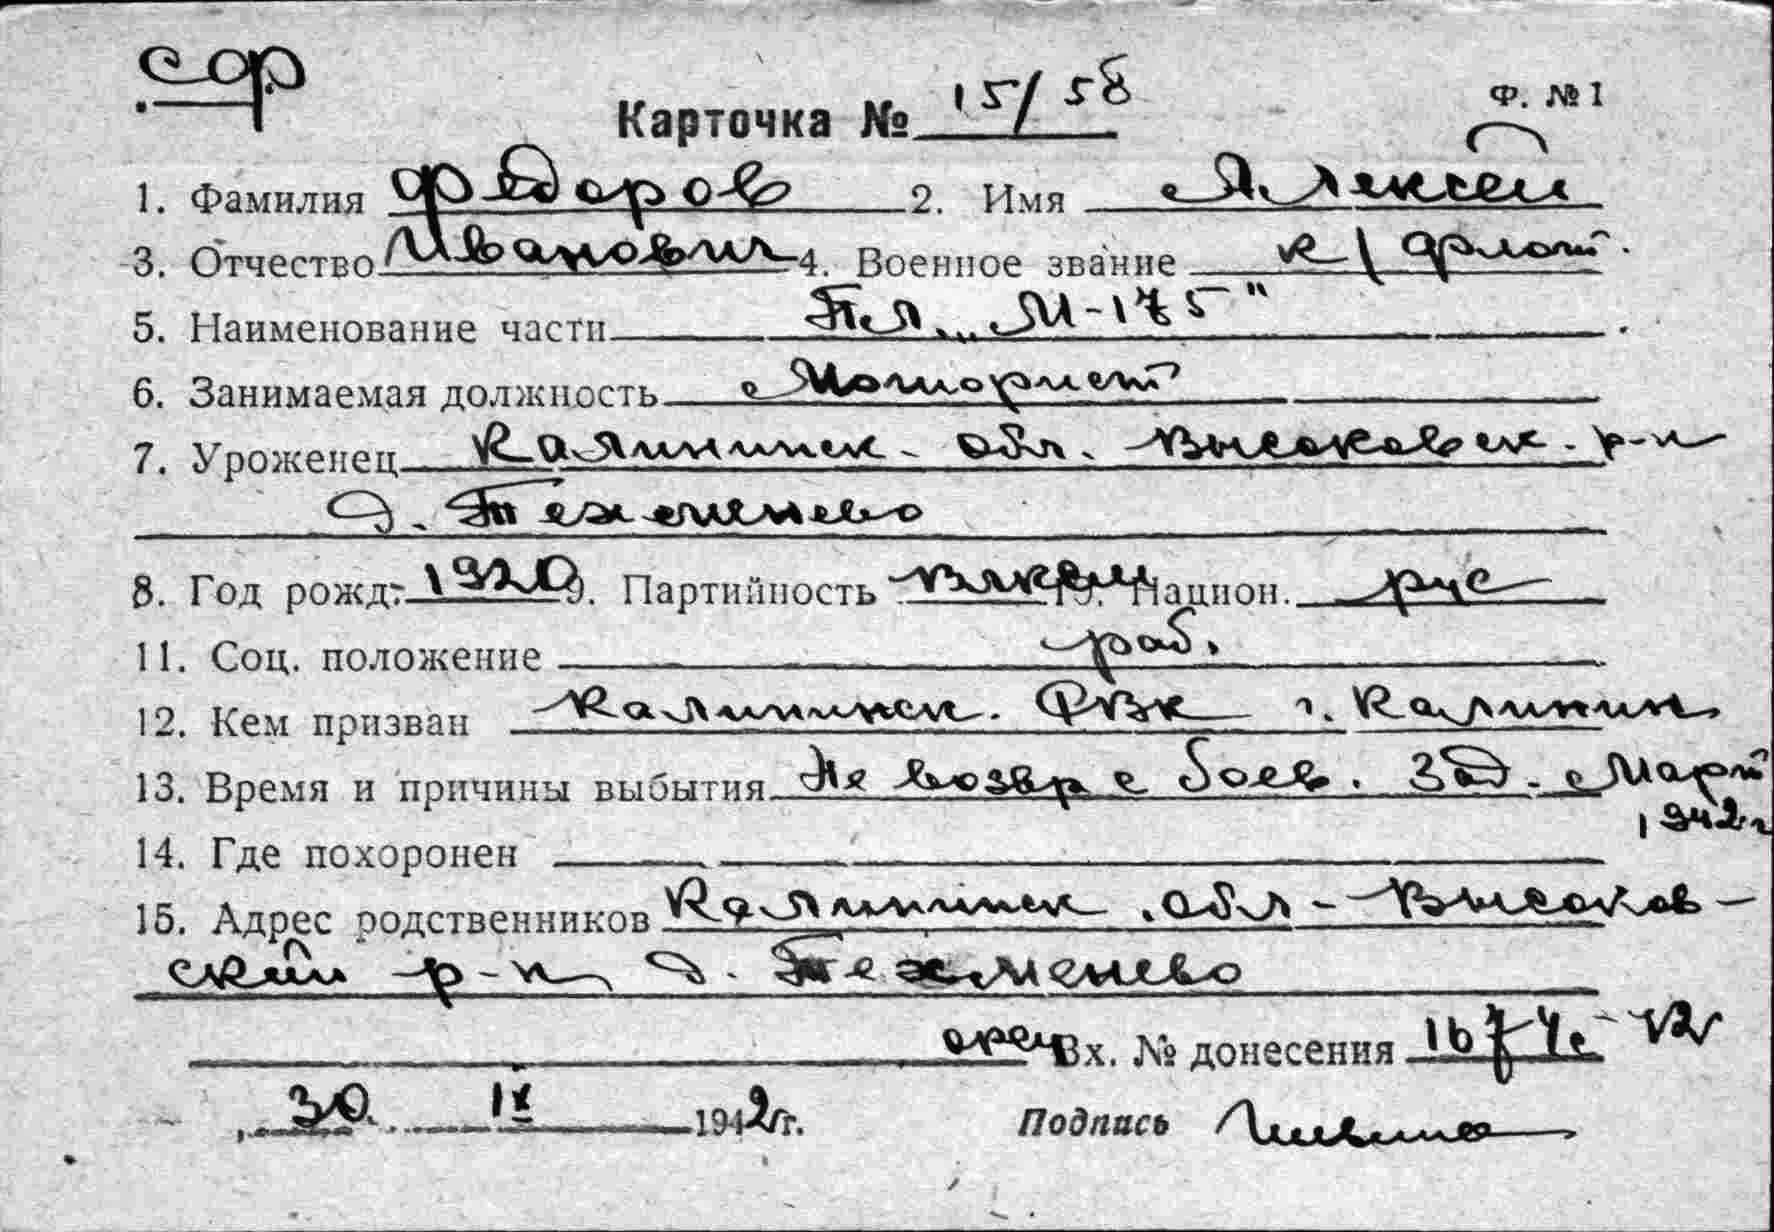 сф
Карточка № 15/58 Ф. № 1
1. Фамилия Федоров 2. Имя Алексей
3. Отчество Иванович 4. Военное звание к/флот.
5. Наименование части Пл. „М-175"
6. Занимаемая должность Моторист
7. Уроженец Калининск. обл. Высоковск. р-н
д. Техменево
8. Год рожд. 1920 9. Партийность ВЛКСМ 10. Национ. рус
11. Соц. положение раб.
12. Кем призван Калининск. РВК г. Калинин
13. Время и причины выбытия Не возвр с боев. зад. Март
1942г
14. Где похоронен
15. Адрес родственников Калининск. обл - Высоков-
ский р-н д. Техменево
Вх. № донесения
30 IX 1942 г.
Подпись